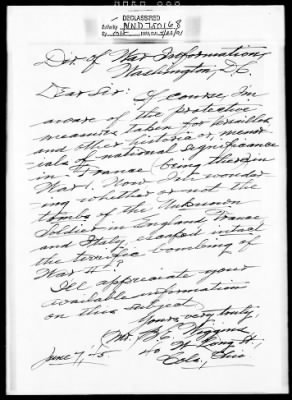 DECLASSIFIED
Authority NND 750168
Dir of War Information,
Washington, D.C.
Dear Sir: Of course I'm
aware of the protective
measures taken for
and other historic or memor
ials of national significance
in France being then in
War I. Now I'm wonder
ing whether or not the
tombs of the Unknown
Soldier in England France
and Italy, escaped intact
the terrific bombing of
War II.
I'll appreciate your
available information
on this subject
Yours very truly,
Mr. B. E. Wiggins
40 W Long St,
June 7, '45 Cols, Ohio